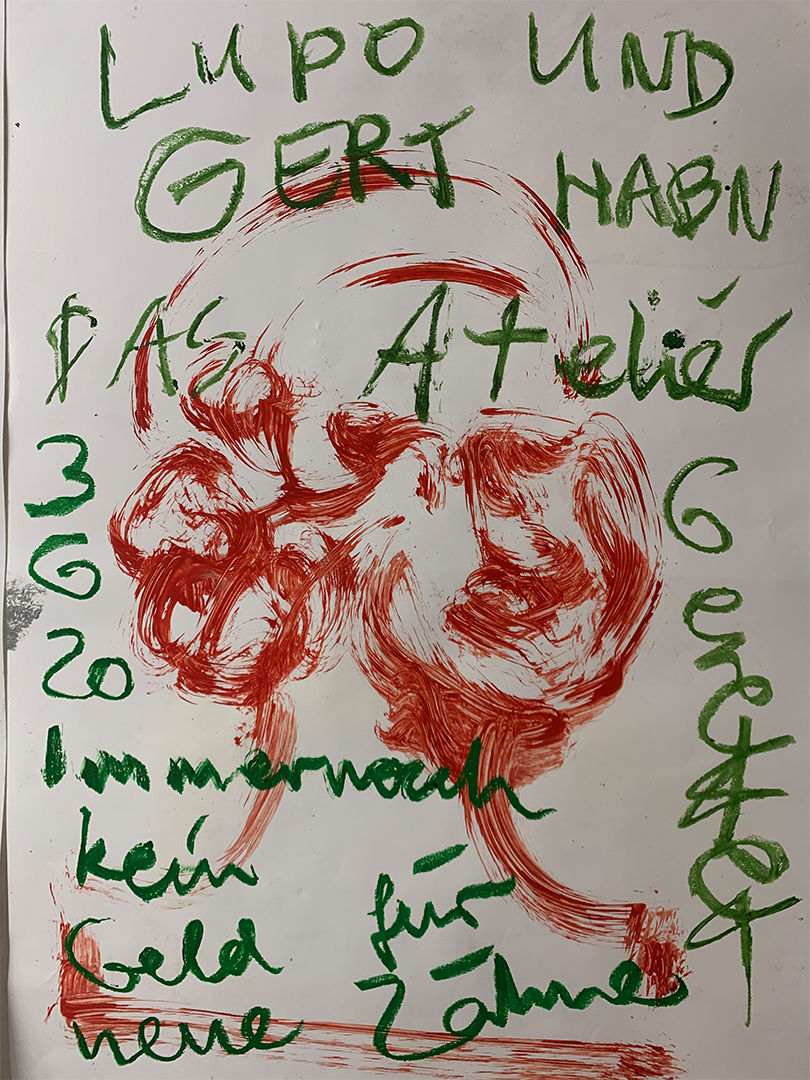 LUPO UND
GERT HABN
DAS Ateliér
Gerettet
3
6
20
Immernoch
kein
Geld für
neue Zähne